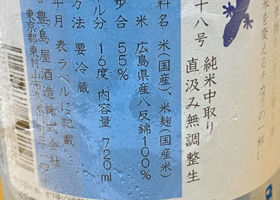 十八号 純米中取り
直汲み無調整生
料名 米(国産)、米麹(国産米)
米 広島県産八反錦100%
歩合 55%
ル分 16度 内容量 720ml
方法 要冷蔵
年月 表ラベルに記載
豊島屋酒造株式会社
東京都東村山市久米川町